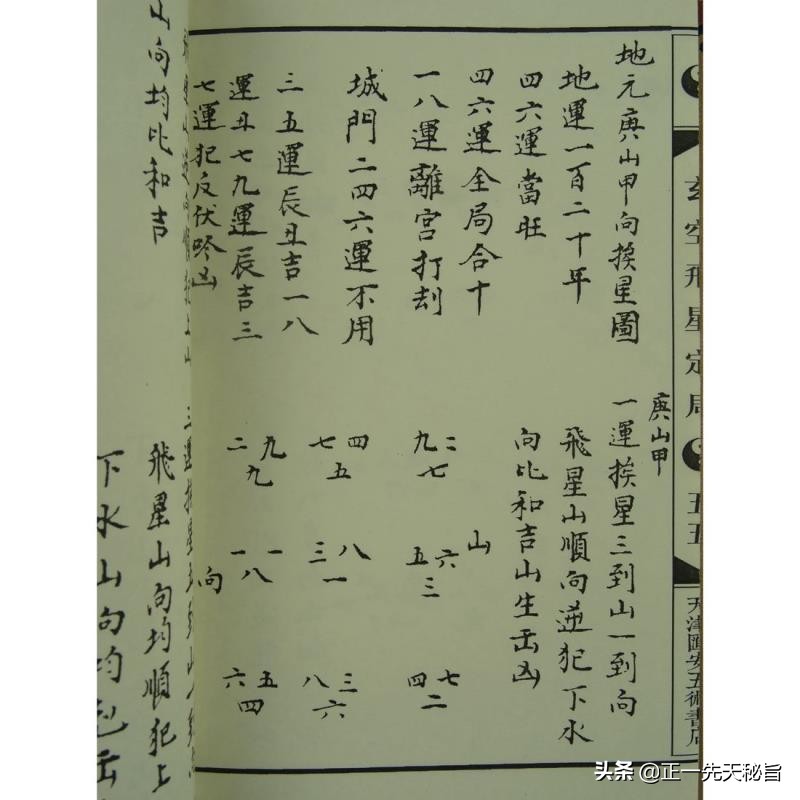 玄空飛星定局
五五
天津匯安五術書店
庚山甲
地元庚山甲向挨星圖
地運一百二十年
四六運當旺
四六運全局合十
一八運離宮打刦
城門二四六運不用
三五運辰丑吉一八
運丑七九運辰吉三
七運犯反伏吟凶
一運挨星三到山一到向
飛星山順向逆犯下水
向比和吉山生出凶
山
九二
七
五六
三
四七
二
七四
五
三八
一
八三
六
二九
九
一一
八
六五
四
向
山向均比和吉
飛星山向均順犯上
下水山向均
头条 @正一先天秘旨